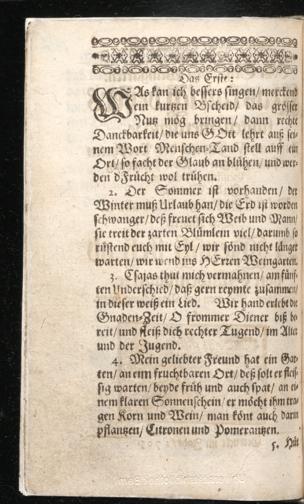 Das Erste:
WAs kan ich bessers singen/ merckend
ein kurtzen Bscheid/ das grösser
Nutz mög bringen/ dann rechte
Danckbarkeit/ die uns GOtt lehrt auß sei-
nem Wort Menschen-Tand stell auff ein
Ort/ so facht der Glaub an blühen/ und wer-
den d'Frücht wol trühen.
2. Der Sommer ist vorhanden/ der
Winter muß Urlaub han/ die Erd ist worden
schwanger/ deß freuet sich Weib und Mann/
sie treit der zarten Blümlein viel/ darumb so
rüstend euch mit Eyl/ wir sönd nicht länger
warten/ wir wend ins HErzen Weingarten.
3. Esajas thut mich vermahnen/ am fünff-
ten Underschied/ daß gern reymte zusammen/
in dieser weiß ein Lied. Wir hand erlebt die
Gnaden-Zeit/ O frommer Diener biß be-
reit/ und fleiß dich rechter Tugend/ im Alter
und der Jugend.
4. Mein geliebter Freund hat ein Gar-
ten/ an eim fruchtbaren Ort/ deß solt er fleis-
sig warten/ beyde früh und auch spat/ an ei-
nem klaren Sonnenschein/ er möcht ihm tra-
gen Korn und Wein/ man könt auch darin
pflantzen/ Citronen und Pomerantzen.
5. Hüt